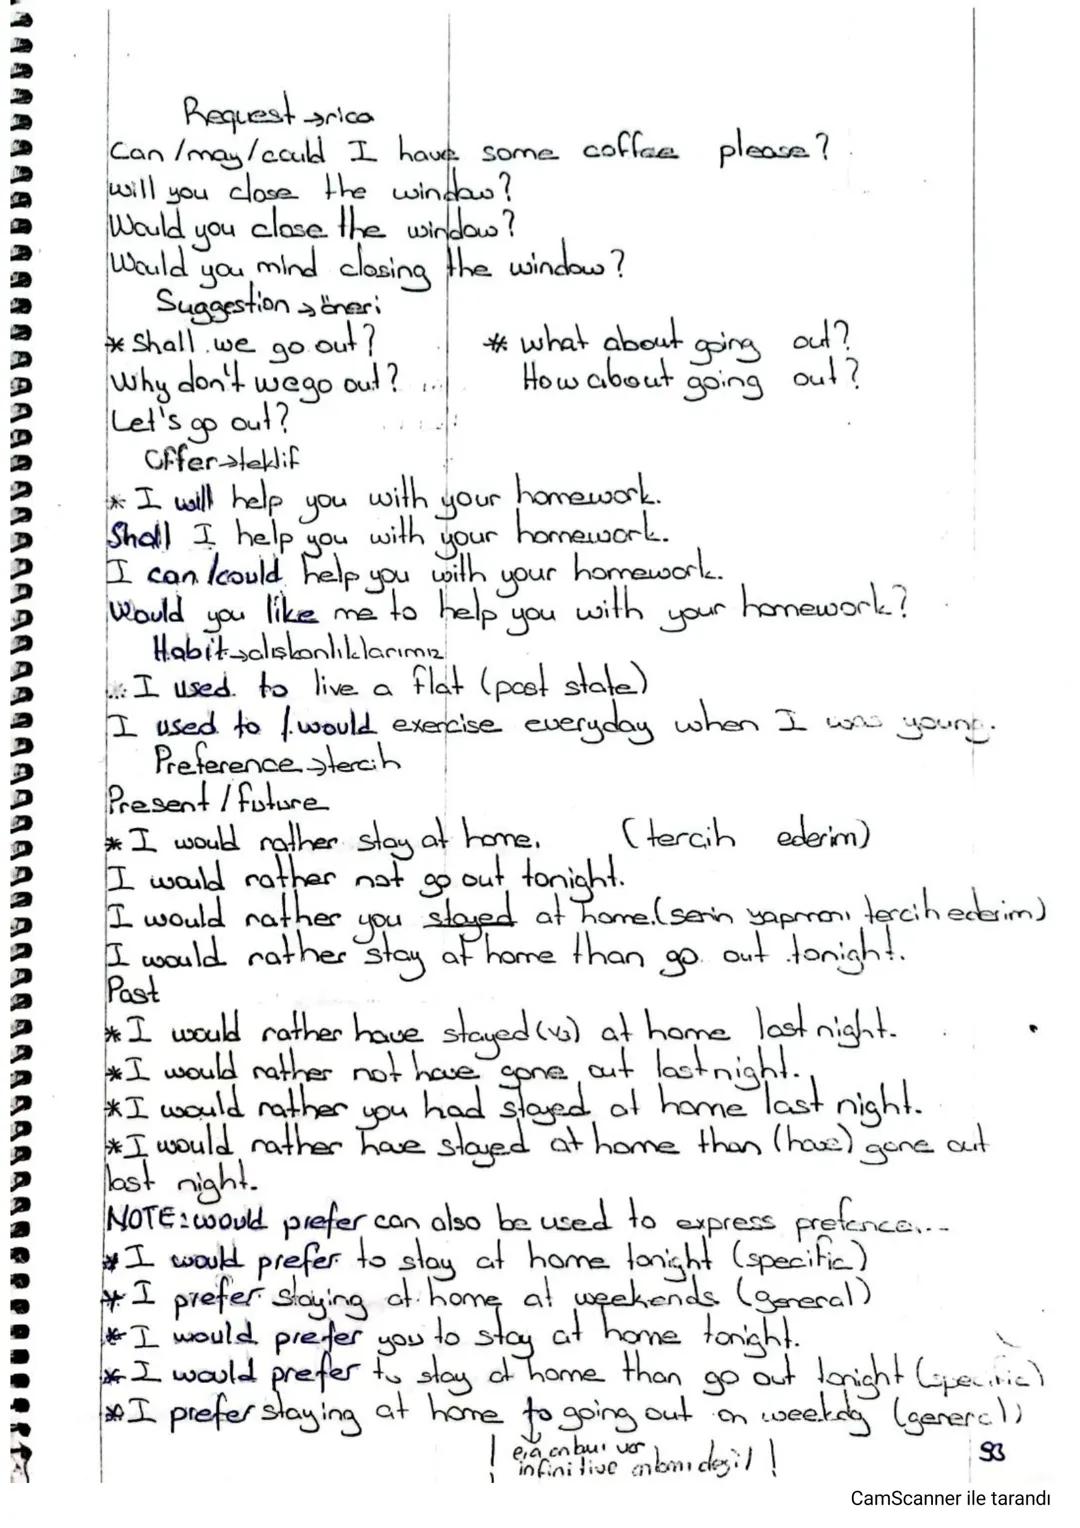 Request →rica
Can /may/could I have some coffee please?
will you close the window?
Would you close the window?
Would you mind closing the window?
Suggestion →öneri
* Shall we go out?
* what about going out?
Why don't we go out?
How about going out?
Let's go out?
Offer→teklif
* I will help you with your homework.
Shall I help you with your homework.
I can /could help you with your homework.
Would you like me to help you with your homework?
Habit→alışkanlıklarımız
I used to live a flat (past state)
I used to /would exercise everyday when I was young.
Preference→tercih
Present / future
* I would rather stay at home. (tercih ederim)
I would rather not go out tonight.
I would rather you stayed at home.(senin yapmanı tercih ederim)
I would rather stay at home than go out tonight.
Past
*I would rather have stayed (v3) at home last night.
*I would rather not have gone out last night.
*I would rather you had stayed at home last night.
*I would rather have stayed at home than (have) gone out
last night.
NOTE: would prefer can also be used to express prefence...
* I would prefer to stay at home tonight (specific)
* I prefer staying at home at weekends (general)
* I would prefer you to stay at home tonight.
* I would prefer to stay at home than go out tonight (specific)
* I prefer staying at home to going out on weekdy (general)
! e,a anlamı var
infinitive anlamı değil !
93
CamScanner ile tarandı